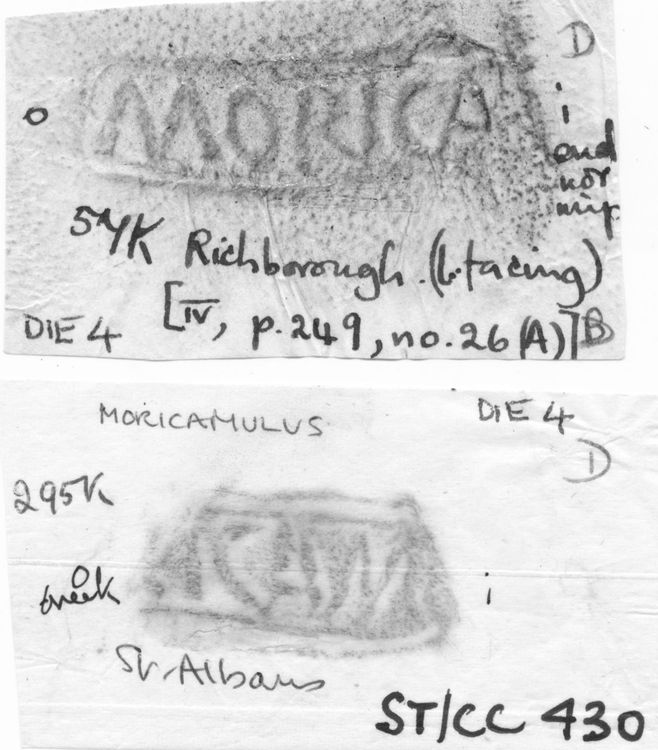 D
MORICA
o
i
end
not
imp.
57K Richborough. (b. facing)
[IV, p. 249, no. 26 (A)] B
DIE 4
MORICAMULUS
DIE 4
D
295K
RICAM
o
i
St. Albans
ST/CC 430